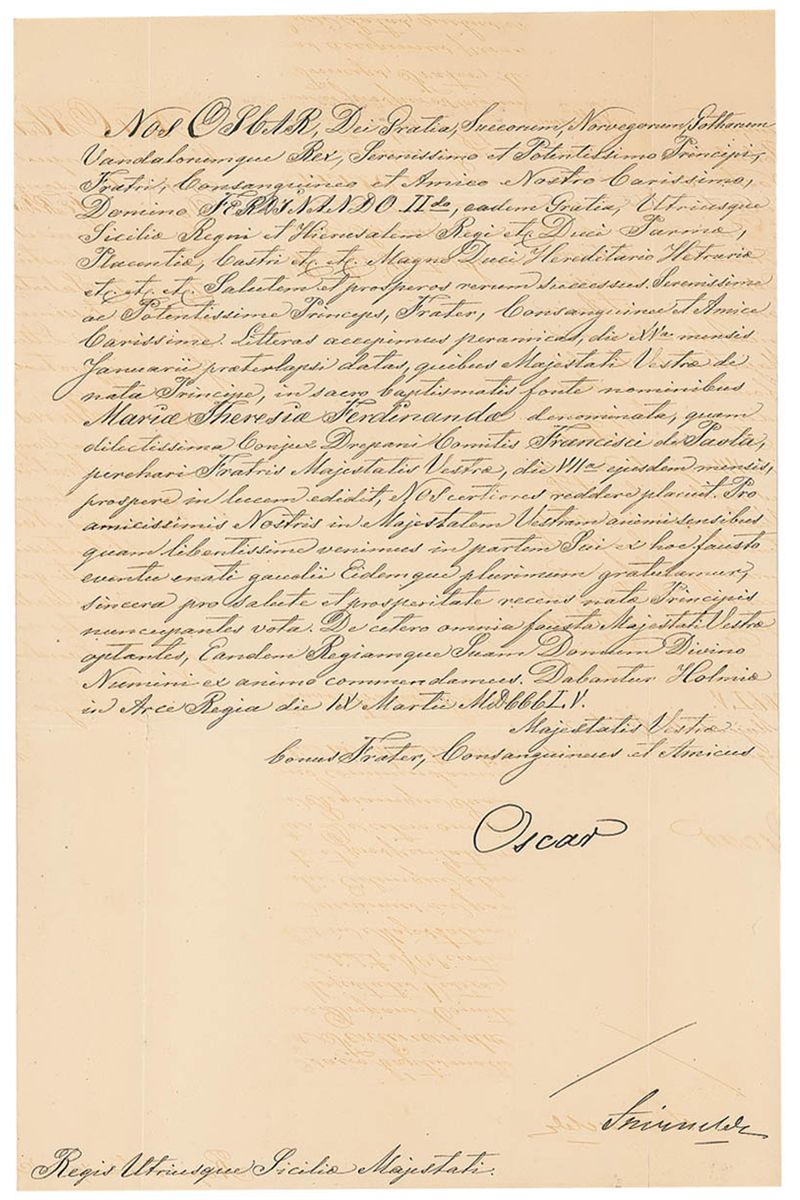 NOS OSCAR, Dei Gratia, Suecorum, Norvegorum, Gothorum
Vandalorumque Rex, Serenissimo et Potentissimo Principi,
Fratri, Consanguineo et Amico Nostro Carissimo,
Domino FERDINANDO IIdo, eadem Gratia, Utriusque
Siciliæ Regni et Hierusalem Regi etc. Duci Parmæ,
Placentiæ, Castri etc. etc. Magno Duci Hereditario Hetruriæ
etc. etc. etc. Salutem et prosperos rerum successus. Serenissime
ac Potentissime Princeps, Frater, Consanguinee et Amice
Carissime. Litteras accepimus peramicas, die mensis
Januarii præterlapsi datas, quibus Majestati Vestræ de
nata Principe, in sacro baptismatis fonte nominibus
Mariæ Theresiæ Ferdinandæ denominata, quam
dilectissima Conjux Drepani Comitis Francisci de Paola,
perchari Fratris Majestatis Vestræ, die VIIa ejusdem mensis,
prospere in lucem edidit, NOS certiores reddere placuit. Pro
amicissimis Nostris in Majestatem Vestram animi sensibus
quam libentissime venimus in partem Sui ex hoc fausto
eventu enati gaudii Eidemque plurimum gratulamur,
sincera pro salute et prosperitate recens natæ Principis
nuncupantes vota. De cetero omnia fausta Majestati Vestræ
optantes, Eandem Regiamque Suam Domum Divino
Numini ex animo commendamus. Dabantur Holmiæ
in Arce Regia die IX Martii MDCCCLV.
Majestatis Vestræ
bonus Frater, Consanguineus et Amicus
Oscar
Regis Utriusque Siciliæ Majestati.